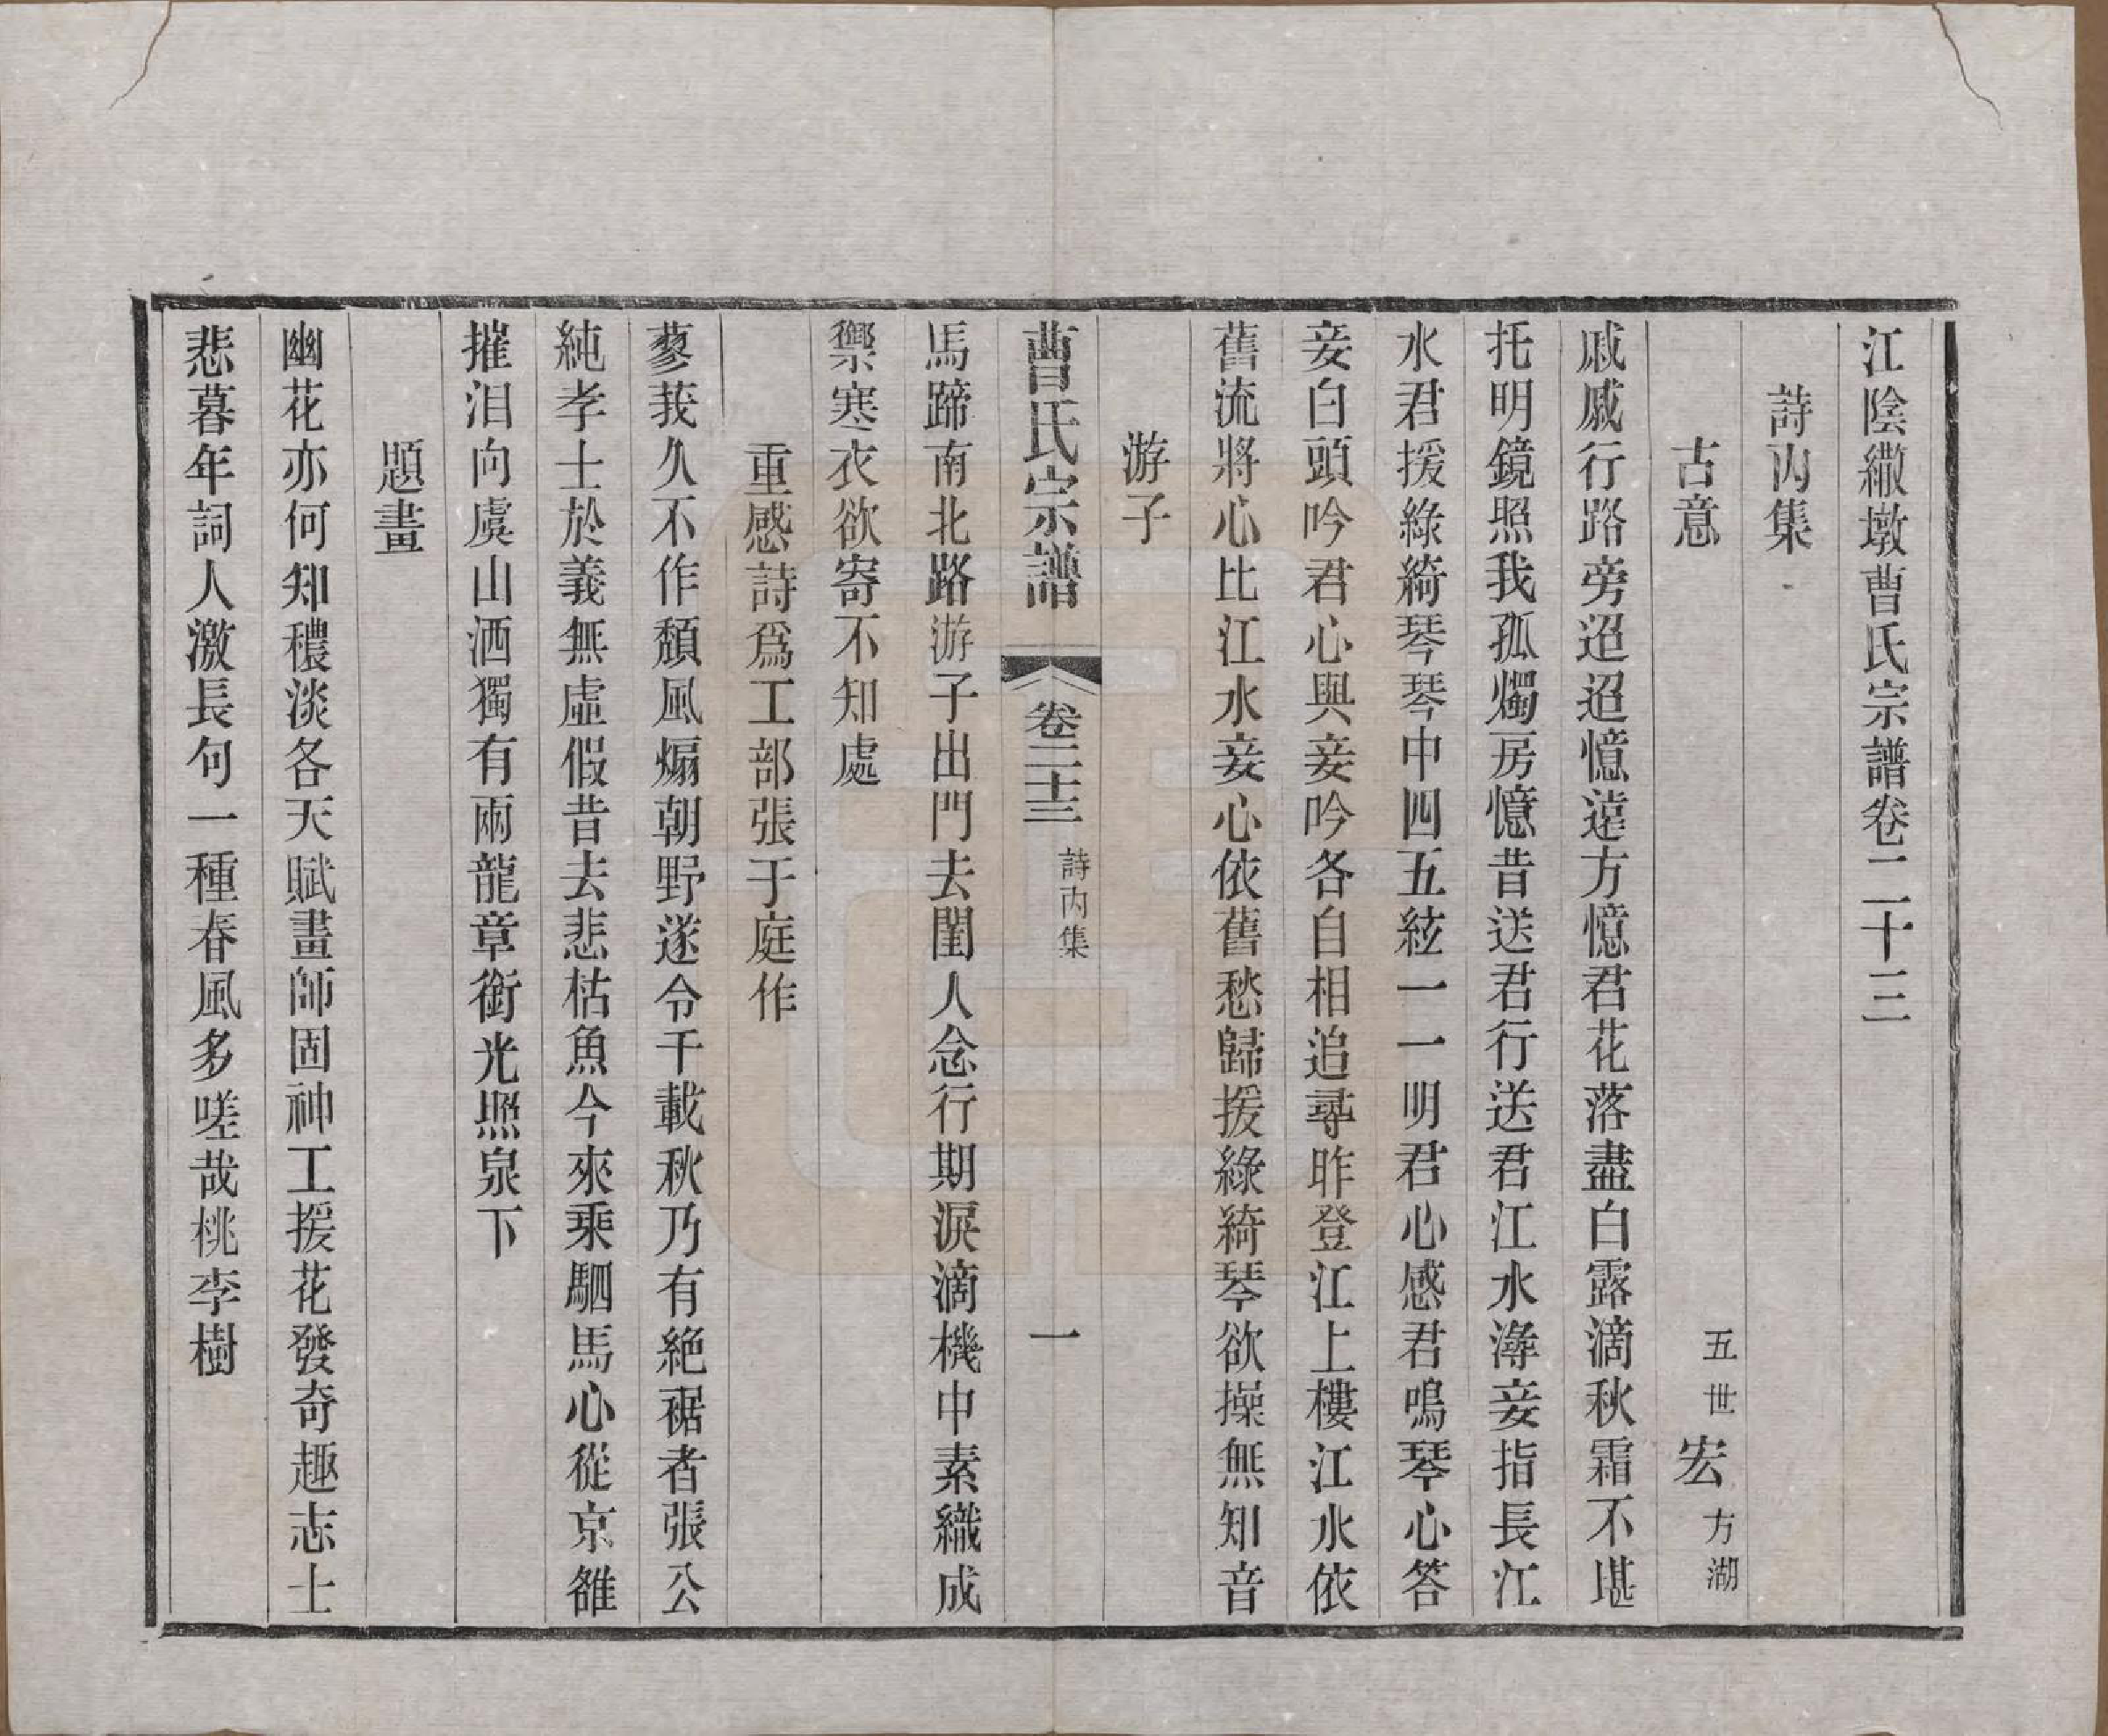 江陰繖墩曹氏宗譜卷二十三
詩內集
古意
五世宏方湖
戚戚行路旁迢迢憶遠方憶君花落盡白露滴秋霜不堪
托明鏡照我孤燭房憶昔送君行送君江水滸妾指長江
水君援綠綺琴琴中四五絃一一明君心感君鳴琴心答
妾白頭吟君心與妾吟各自相追尋昨登江上樓江水依
舊流將心比江水妾心依舊愁歸援綠綺琴欲操無知音
游子
曹氏宗譜
卷二十三
詩內集
一
馬蹄南北路游子出門去閨人念行期淚滴機中素織成
禦寒衣欲寄不知處
重感詩爲工部張于庭作
蓼莪久不作頹風煽朝野遂令千載秋乃有絶裾者張公
純孝士於義無虛假昔去悲枯魚今來乘駟馬心從京雒
摧泪向虞山洒獨有兩龍章銜光照泉下
題畫
幽花亦何知穠淡各天賦畫師固神工援花發奇趣志士
悲暮年詞人激長句一種春風多嗟哉桃李樹